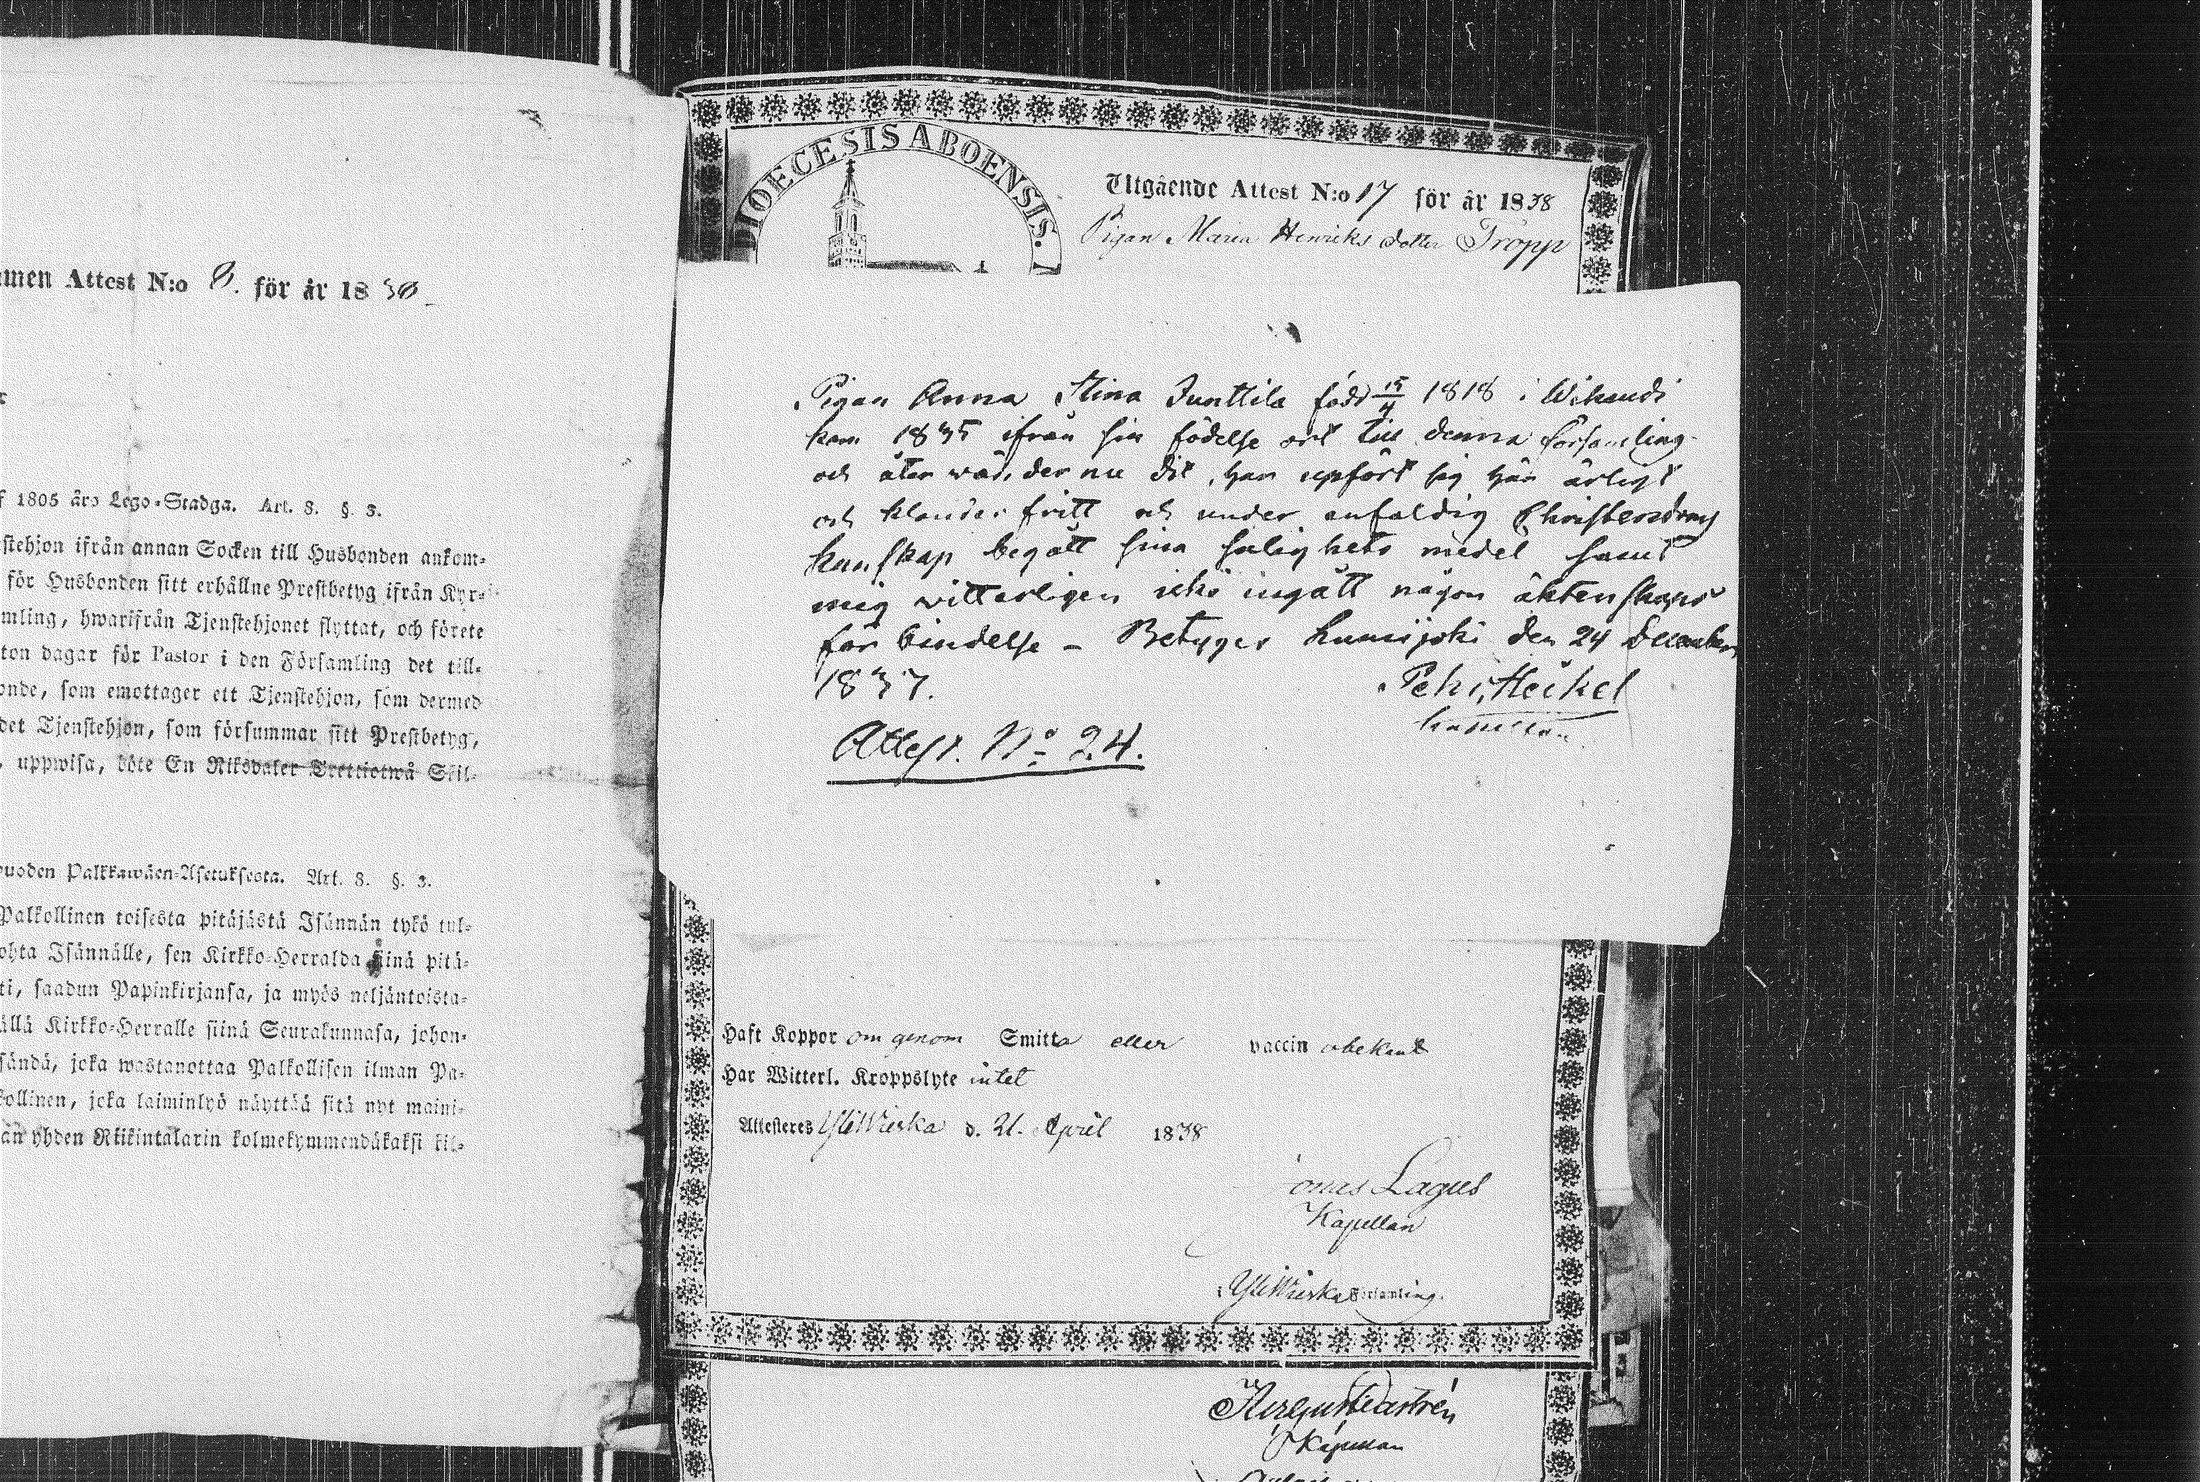 men Attest N:o 8. för år 1838
f 1805 års Lego-Stadga. Art. 8. §. 3.
stehjon ifrån annan Socken till Husbonden ankom-
för Husbonden sitt erhållne Prestbetyg ifrån Kyr-
mling, hwarifrån Tjenstehjonet flyttat, och förete
ton dagar för Pastor i den Församling det till-
onde, som emottager ett Tjenstehjon, som dermed
det Tjenstehjon, som försummar sitt Prestbetyg,
, uppwisa, böte En Riksdaler Trettiotwå Skil-
uoden Palkkawäen-Asetuksesta. Art. 8. §. 3.
Palkollinen toisesta pitäjästä Isännän tykö tul-
ohta Isännälle, sen Kirkko-Herralda siinä pitä-
ti, saadun Papinkirjansa, ja myös neljäntoista-
ällä Kirkko-Herralle siinä Seurakunnasa, johon-
sändä, joka wastanottaa Palkollisen ilman Pa-
kollinen, joka laiminlyö näyttää sitä nyt maini-
an yhden Riikintalarin kolmekymmendäkaksi kil-
DIOECESIS ABOENSIS.
Utgående Attest N:o 17 för år 1838
Pigan Maria Henriks dotter Tröpp
Pigan Anna Stina Junttila född 15/4 1818 i Wihandi
kom 1835 ifrån sin födelse ort till denna församling
och åter wänder nu dit, har upfört sig här ärligt
och klander fritt och under enfaldig Christendoms
kunskap begått sina salighets medel samt
mig witterligen icke ingått någon äktenskaps
för bindelse – Betygar Lumijoki den 24 December
1837.
Pehr Heikel
Kapellan
Attest. No 24.
Haft Koppor om genom Smitta eller vaccin obekant
Har Witterl. Kroppslyte intet
Attesteres YliWieska d. 21. April 1838
Jonas Lagus
Kapellan
i YliWieska Församling.
Kapellan